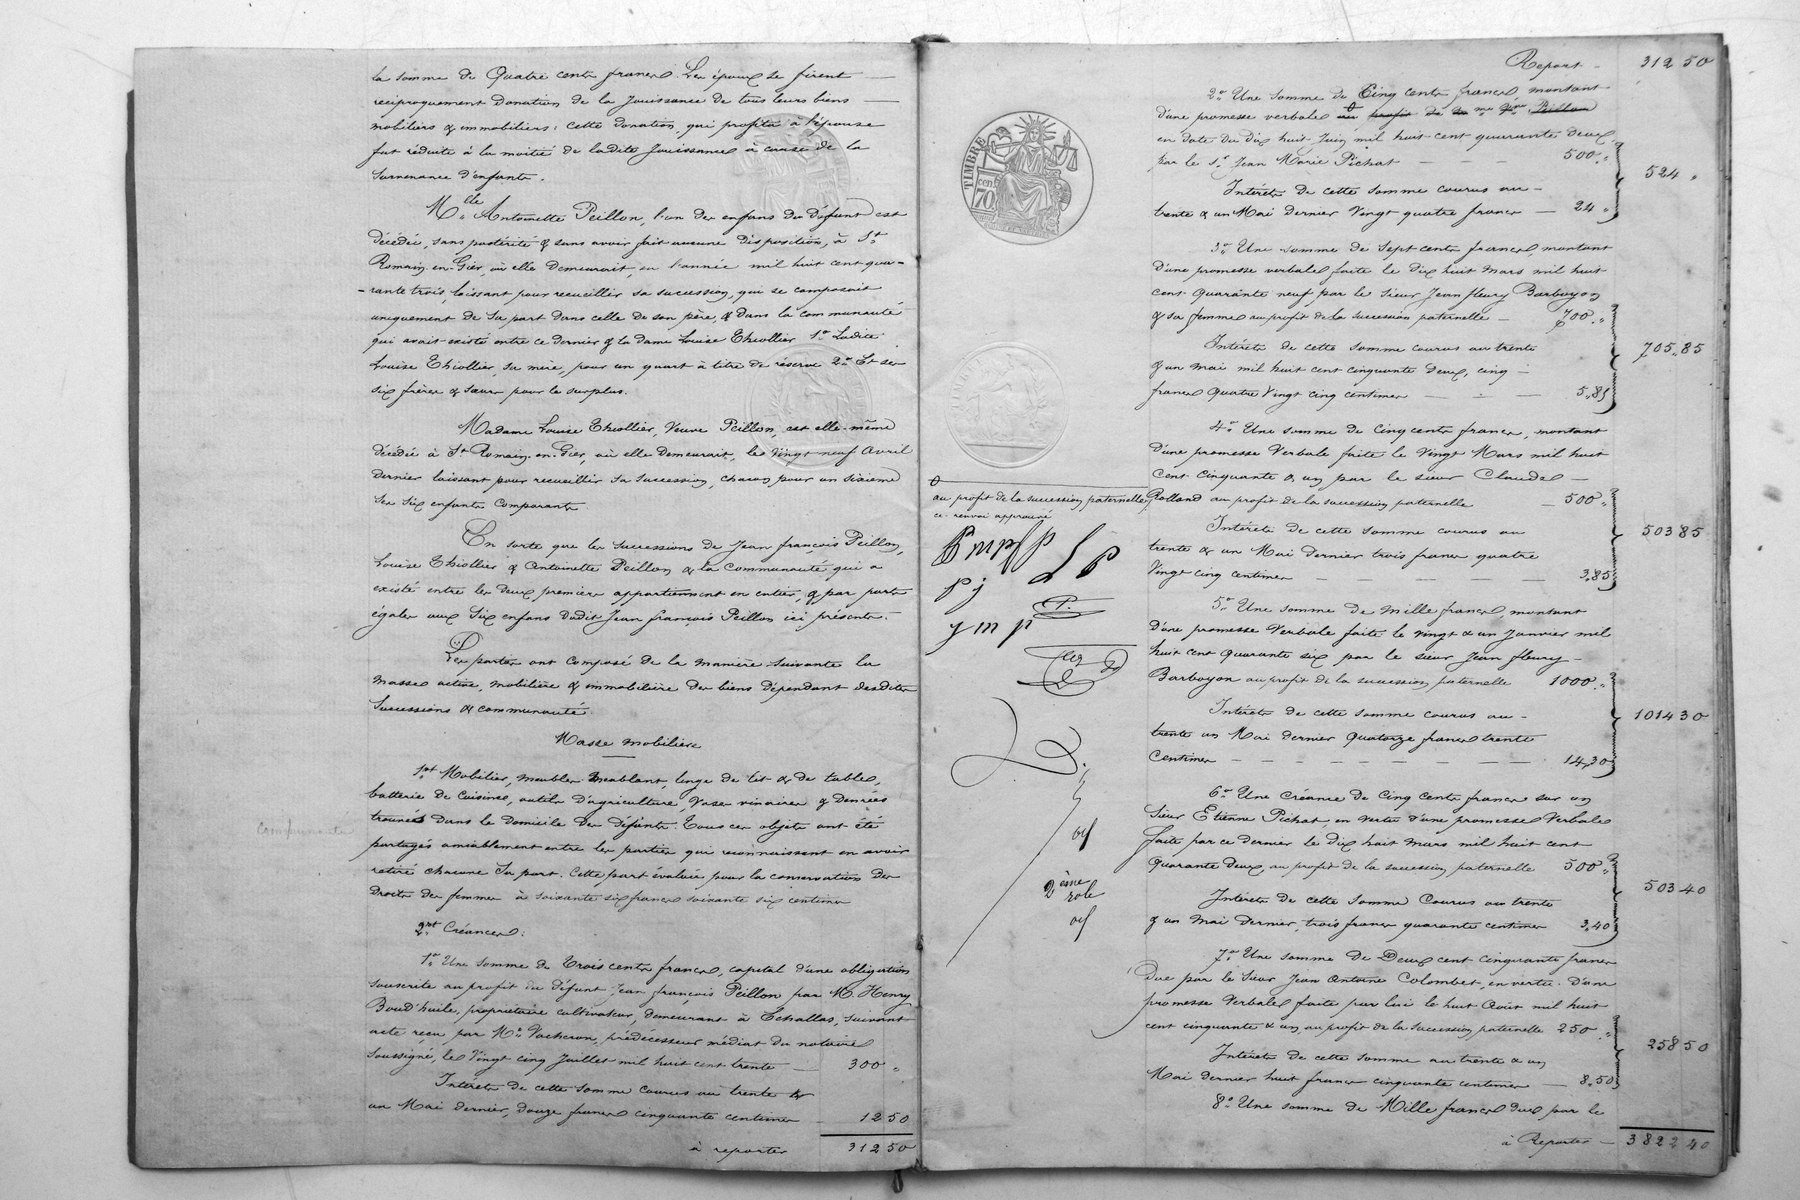 la somme de Quatre cents francs. Les époux se firent
réciproquement donation de la Jouissance de tous leurs biens
mobiliers & immobiliers; cette donation, qui profita à l'épouse
fut réduite à la moitié de ladite Jouissance à cause de la
survenance d'enfants.
Mlle Antoinette Peillon, l'un des enfans du défunt est
décédée, sans postérité & sans avoir fait aucune disposition, à St
Romain-en-Gier, où elle demeurait, en l'année mil huit cent qua-
-rante trois, laissant pour recueillir sa succession, qui se composait
uniquement de sa part dans celle de son père, & dans la communauté
qui avait existé entre ce dernier & la dame Louise Thiollier 1o Ladite
Louise Thiollier, sa mère, pour un quart à titre de réserve 2o Et ses
six frères & sœurs pour le surplus.
Madame Louise Thiollier, Veuve Peillon, est elle-même
décédée à St Romain-en-Gier, où elle demeurait, le vingt neuf Avril
dernier laissant pour recueillir sa succession, chacun pour un sixième
ses six enfants comparants
En sorte que les successions de Jean françois Peillon,
Louise Thiollier & Antoinette Peillon & la communauté qui a
existé entre les deux premiers appartiennent en entier, & par parts
égales aux six enfans dudit Jean françois Peillon ici présents.
Les parties ont composé de la manière suivante la
masse active, mobilière & immobilière des biens dépendant desdites
successions & communauté.
Masse mobilière
1ent Mobilier, meubles meublant, linge de lit & de table,
batterie de cuisine, outils d'agriculture, vases vinaires & denrées
trouvés dans le domicile des défunts. Tous ces objets ont été
partagés amiablement entre les parties qui reconnaissent en avoir
retiré chacune sa part. Cette part évaluée pour la conservation des
droits des femmes à soixante six francs soixante six centimes
2ent Créances:
1o Une somme de Trois cents francs, capital d'une obligation
souscrite au profit du défunt Jean françois Peillon par M. Henry
Boud'huile, propriétaire cultivateur, demeurant à Échallas, suivant
acte reçu par Me Vacheron, prédécesseur médiat du notaire
soussigné, le Vingt cinq Juillet mil huit cent trente — 300 "
Intérêts de cette somme courus au trente &
un Mai dernier, douze francs cinquante centimes — 12 50
à reporter 312 50
Report — 312 50
2o Une somme de Cinq cents francs, montant
d'une promesse verbale au profit de
en date du dix huit Juin mil huit cent quarante deux,
par le sr Jean Marie Pichat — — — 500 "
524 "
Intérêts de cette somme courus au
trente & un Mai dernier Vingt quatre francs — 24 "
3o Une somme de sept cents francs, montant
d'une promesse verbale faite le dix huit mars mil huit
cent quarante neuf par le sieur Jean fleury Barboyon
& sa femme au profit de la succession paternelle — 700 "
705,85
Intérêts de cette somme courus au trente
& un mai mil huit cent cinquante deux, cinq
francs Quatre Vingt cinq centimes — — — 5,85
4o Une somme de cinq cents francs, montant
d'une promesse Verbale faite le vingt Mars mil huit
cent cinquante & un par le sieur Claude
au profit de la succession paternelle
ce renvoi approuvé
Rolland au profit de la succession paternelle — 500 "
503 85
Intérêts de cette somme courus au
trente & un Mai dernier trois francs quatre
Vingt cinq centimes — — — 3,85
p j
j m p
5o Une somme de mille francs, montant
d'une promesse verbale faite le vingt & un janvier mil
huit cent quarante six par le sieur Jean fleury
Barboyon au profit de la succession paternelle 1000 "
1014 30
Intérêts de cette somme courus au
trente un Mai dernier Quatorze francs trente
centimes — — — 14,30
6o Une Créance de cinq cents francs sur un
sieur Étienne Pichat en vertu d'une promesse Verbale
faite par ce dernier le dix huit mars mil huit cent
quarante deux au profit de la succession paternelle 500 "
503 40
2ème
rôle
Intérêts de cette somme Courus au trente
& un mai dernier, trois francs quarante centimes 3,40
7o Une somme de Deux cent cinquante francs
due par le sieur Jean Antoine Colombet, en vertu d'une
promesse Verbale faite par lui le huit Août mil huit
cent cinquante & un au profit de la succession paternelle 250 "
258 50
Intérêts de cette somme au trente & un
Mai dernier huit francs cinquante centimes — 8,50
8o Une somme de Mille francs due par le
à Reporter — 3822 40
TIMBRE
70 cent